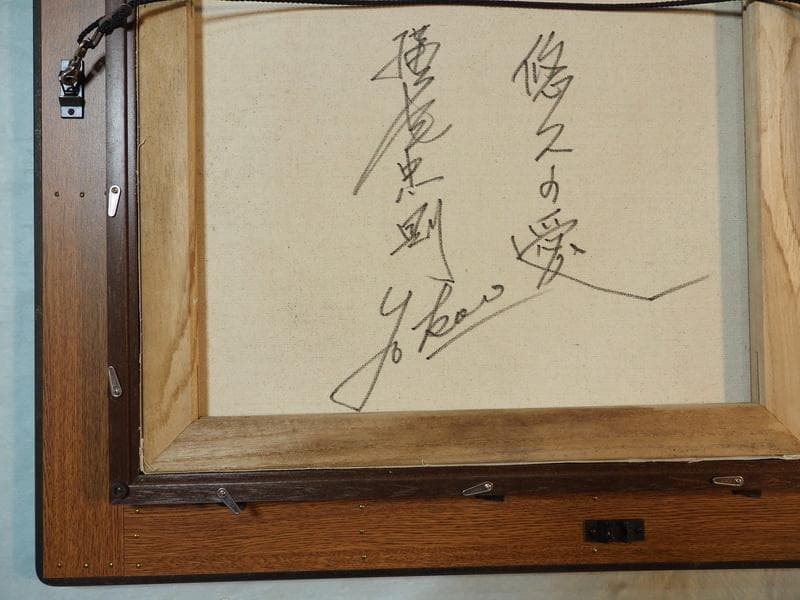 悠久の愛
横尾忠則
Yokoo